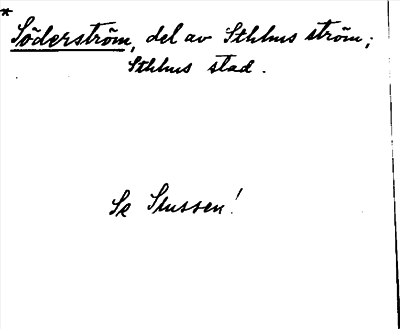 * Söderström, del av Sthlms ström;
Sthlms stad.
Se Slussen!